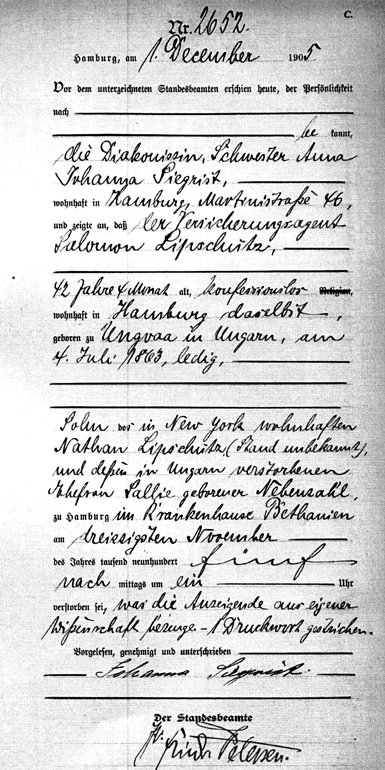 C.
Nr. 2652.
Hamburg, am 1. December 1905.
Vor dem unterzeichneten Standesbeamten erschien heute, der Persönlichkeit
nach
be kannt,
die Diakonissin, Schwester Anna
Johanna Siegrist,
wohnhaft in Hamburg, Martinistraße 46,
und zeigte an, daß der Versicherungsagent
Salomon Lipschütz,
42 Jahre 4 Monat alt, konfessionslos Religion,
wohnhaft in Hamburg daselbst,
geboren zu Ungvaa in Ungarn, am
4. Juli 1863, ledig,
Sohn des in New York wohnhaften
Nathan Lipschütz, (Stand unbekannt),
und deßen in Ungarn verstorbenen
Ehefrau Sallie geborener Nebenzahl,
zu Hamburg im Krankenhause Bethanien
am dreissigsten November
des Jahres tausend neunhundert fünf
nach mittags um ein Uhr
verstorben sei, was die Anzeigende aus eigener
Wißenschaft bezeuge - 1 Druckwort gestrichen.
Vorgelesen, genehmigt und unterschrieben
Johanna Siegrist.
Der Standesbeamte
Petersen.